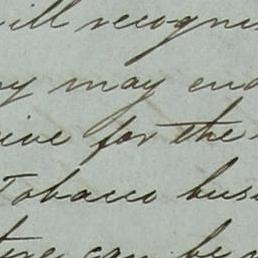 ill recogni
ny may end
ive for the
Tobacco bus
can be